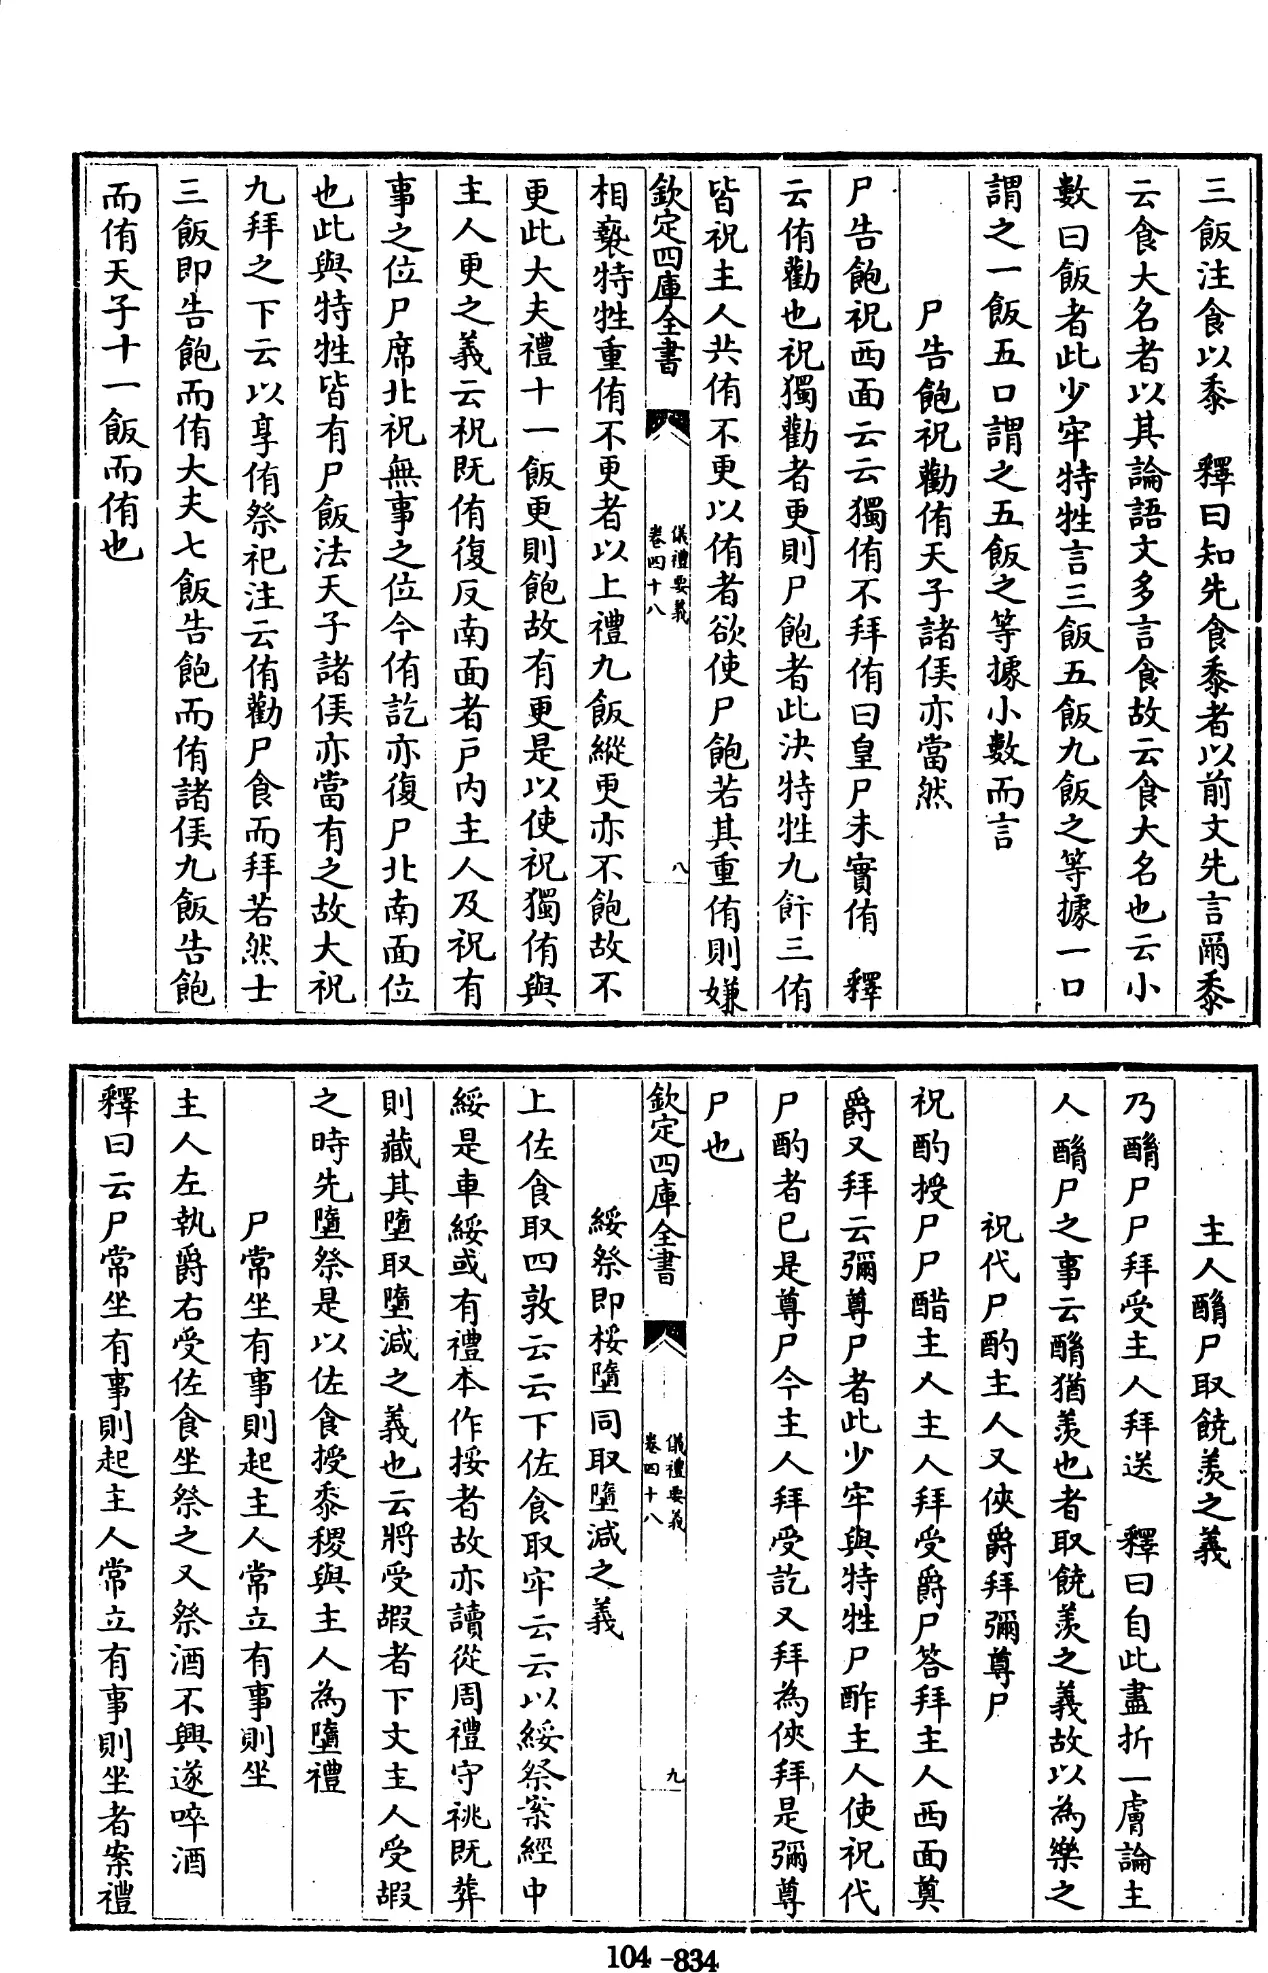 三飯注食以黍　釋曰知先食黍者以前文先言爾黍
云食大名者以其論語文多言食故云食大名也云小
數曰飯者此少牢特牲言三飯五飯九飯之等據一口
謂之一飯五口謂之五飯之等據小數而言
尸告飽祝勸侑天子諸侯亦當然
尸告飽祝西面云云獨侑不拜侑曰皇尸未實侑　釋
云侑勸也祝獨勸者更則尸飽者此決特牲九飰三侑
皆祝主人共侑不更以侑者欲使尸飽若其重侑則嫌
欽定四庫全書　儀禮要義　卷四十八　八
相褻特牲重侑不更者以上禮九飯縱更亦不飽故不
更此大夫禮十一飯更則飽故有更是以使祝獨侑與
主人更之義云祝既侑復反南面者戶內主人及祝有
事之位尸席北祝無事之位今侑訖亦復尸北南面位
也此與特牲皆有尸飯法天子諸侯亦當有之故大祝
九拜之下云以享侑祭祀注云侑勸尸食而拜若然士
三飯即告飽而侑大夫七飯告飽而侑諸侯九飯告飽
而侑天子十一飯而侑也
主人酳尸取饒羨之義
乃酳尸尸拜受主人拜送　釋曰自此盡折一膚論主
人酳尸之事云酳猶羨也者取饒羨之義故以為樂之
祝代尸酌主人又俠爵拜彌尊尸
祝酌授尸尸醋主人主人拜受爵尸答拜主人西面奠
爵又拜云彌尊尸者此少牢與特牲尸酢主人使祝代
尸酌者已是尊尸今主人拜受訖又拜為俠拜是彌尊
尸也
欽定四庫全書　儀禮要義　卷四十八　九
綏祭即挼墮同取墮減之義
上佐食取四敦云云下佐食取牢云云以綏祭案經中
綏是車綏或有禮本作挼者故亦讀從周禮守祧既葬
則藏其墮取墮減之義也云將受嘏者下文主人受嘏
之時先墮祭是以佐食授黍稷與主人為墮禮
尸常坐有事則起主人常立有事則坐
主人左執爵右受佐食坐祭之又祭酒不興遂啐酒
釋曰云尸常坐有事則起主人常立有事則坐者案禮
104-834